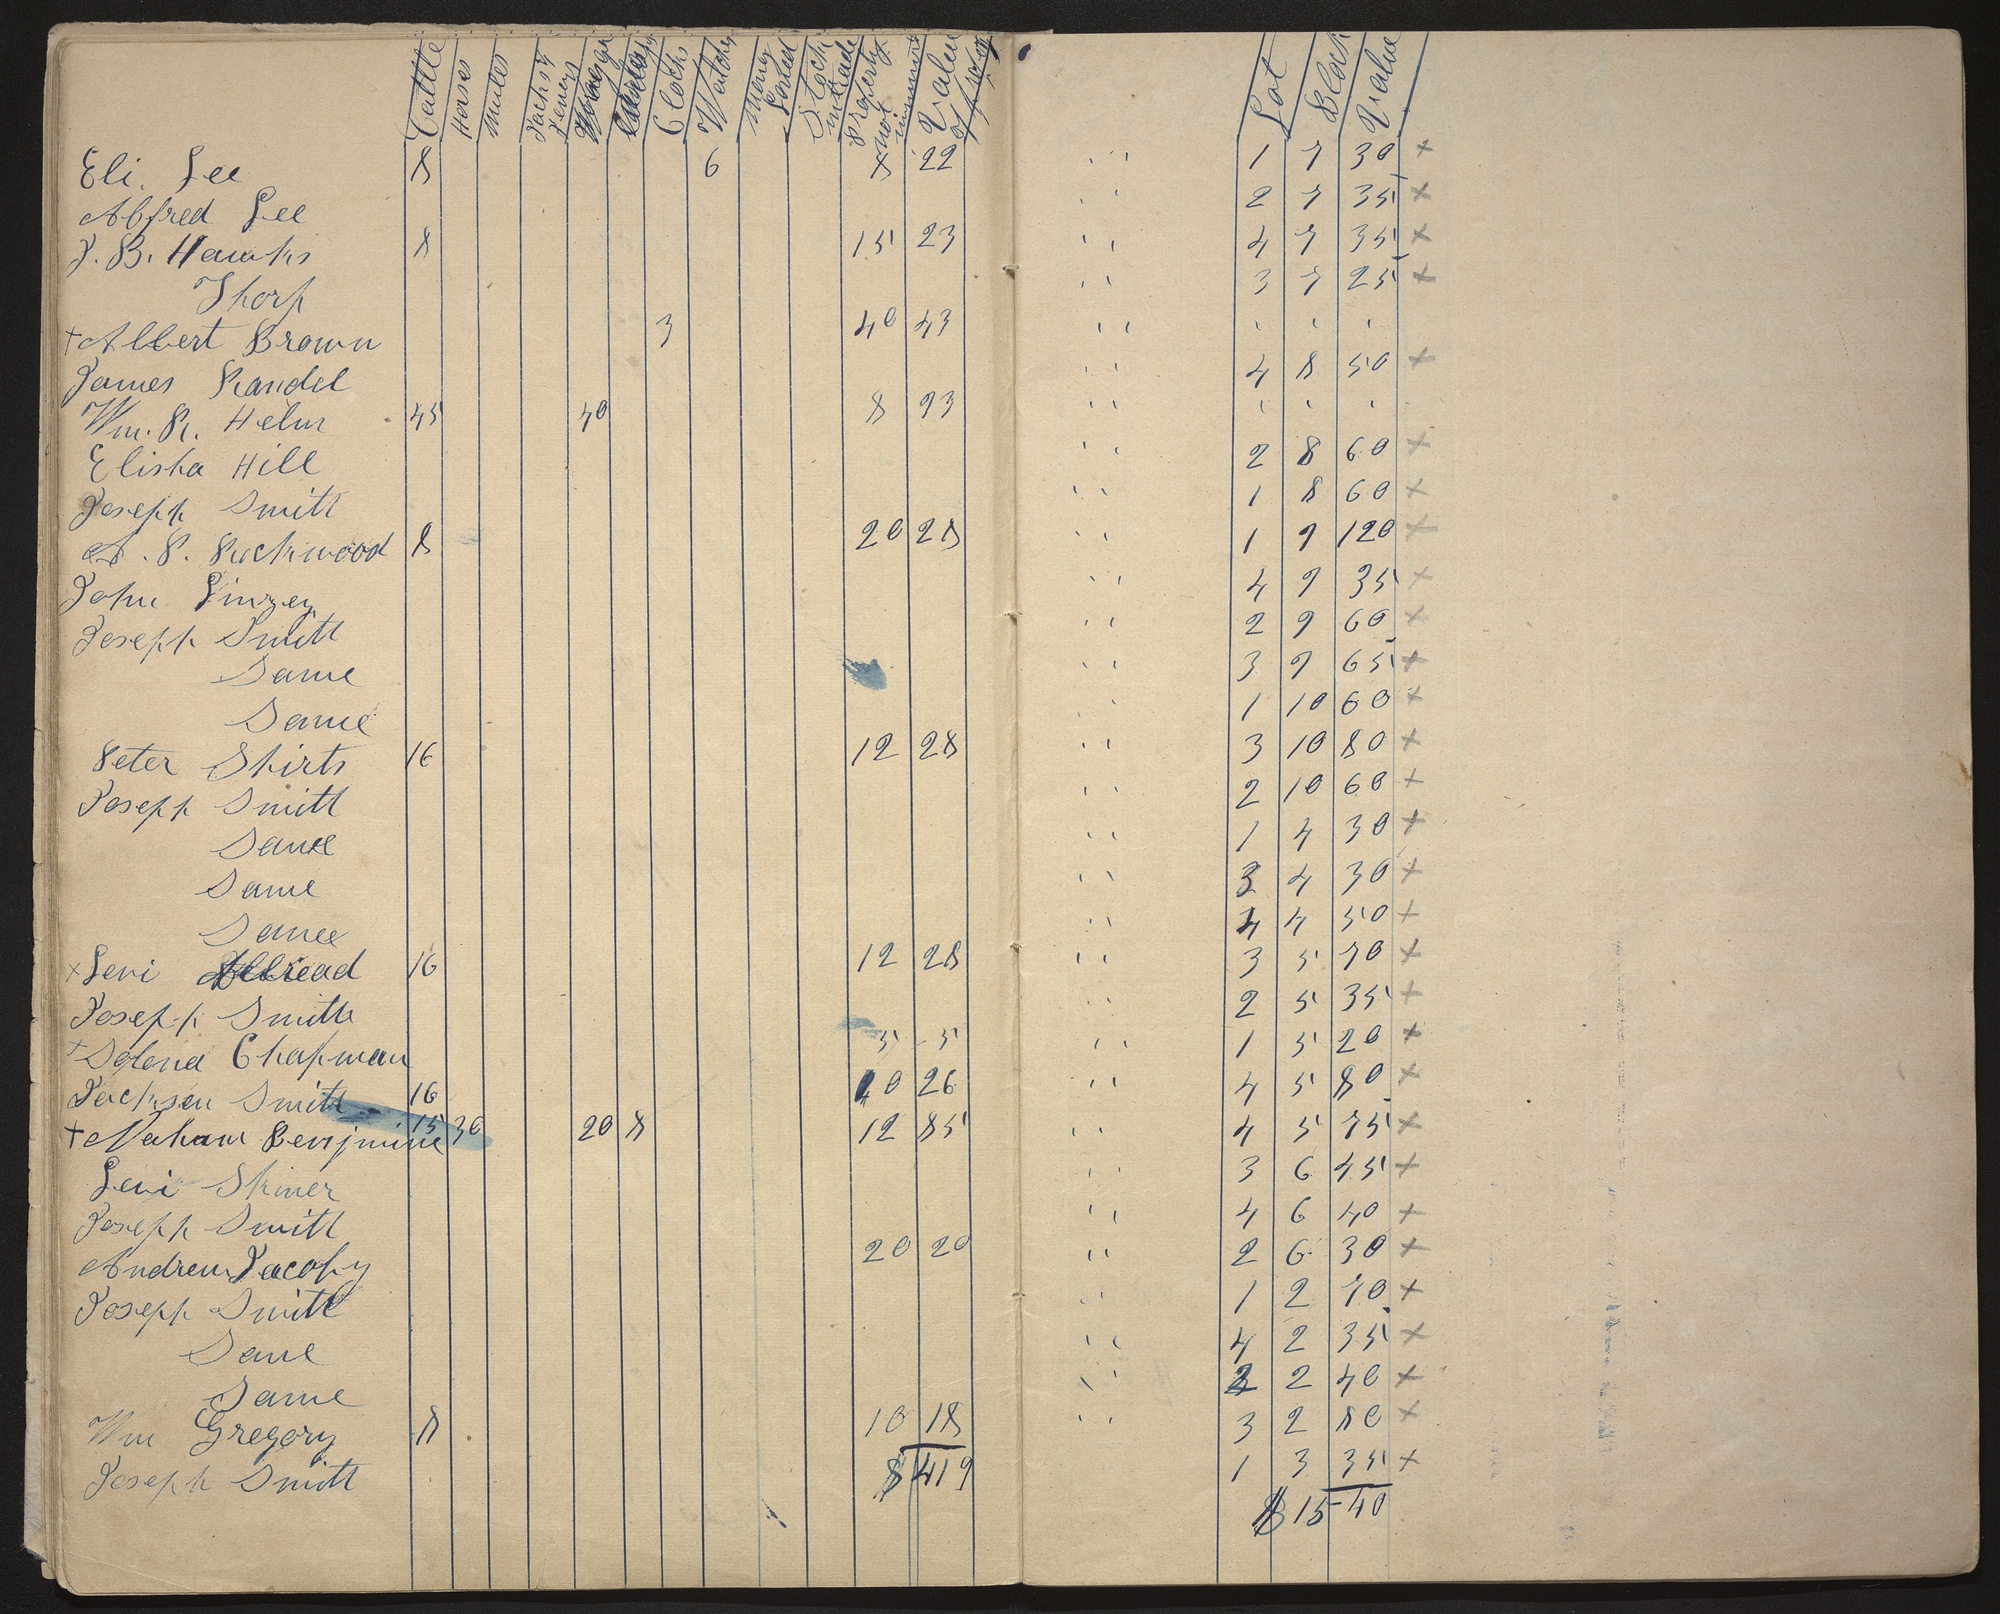 Cattle Horses Mules Clocks Watches Money Loned Stock in trade Property not innumerat Value of Lot Block Value
Eli. Lee 8 6 8 22 1 7 30 +
Alfred Lee 2 7 35 +
J. B. Hawks 8 15 23 4 7 35 +
Thorp 3 7 25 +
+ Albert Brown 3 40 43
James Randel 4 8 50 +
Wm. R. Helm 45 40 8 93
Elisha Hill 2 8 60 +
Joseph Smith 1 8 60 +
A. P. Rockwood 8 20 28 1 9 120 +
John Linzey 4 9 35 +
Joseph Smith 2 9 60 +
Same 3 9 65 +
Same 1 10 60 +
Peter Shirts 16 12 28 3 10 80 +
Joseph Smith 2 10 60 +
Same 1 4 30 +
Same 3 4 30 +
Same 4 4 50 +
+ Levi Allread 16 12 28 3 5 70 +
Joseph Smith 2 5 35 +
+ Solena Chapman 5 5 1 5 20 +
Jackson Smith 16 10 26 4 5 80 +
+ Naham Benjmine 15 30 20 8 12 85 4 5 75 +
Levi Skiner 3 6 45 +
Joseph Smith 4 6 40 +
Andrew Jacoby 20 20 2 6 30 +
Joseph Smith 1 2 70 +
Same 4 2 35 +
Same 2 2 40 +
Wm Gregory 8 10 18 3 2 80 +
Joseph Smith $419 1 3 35 +
$1540